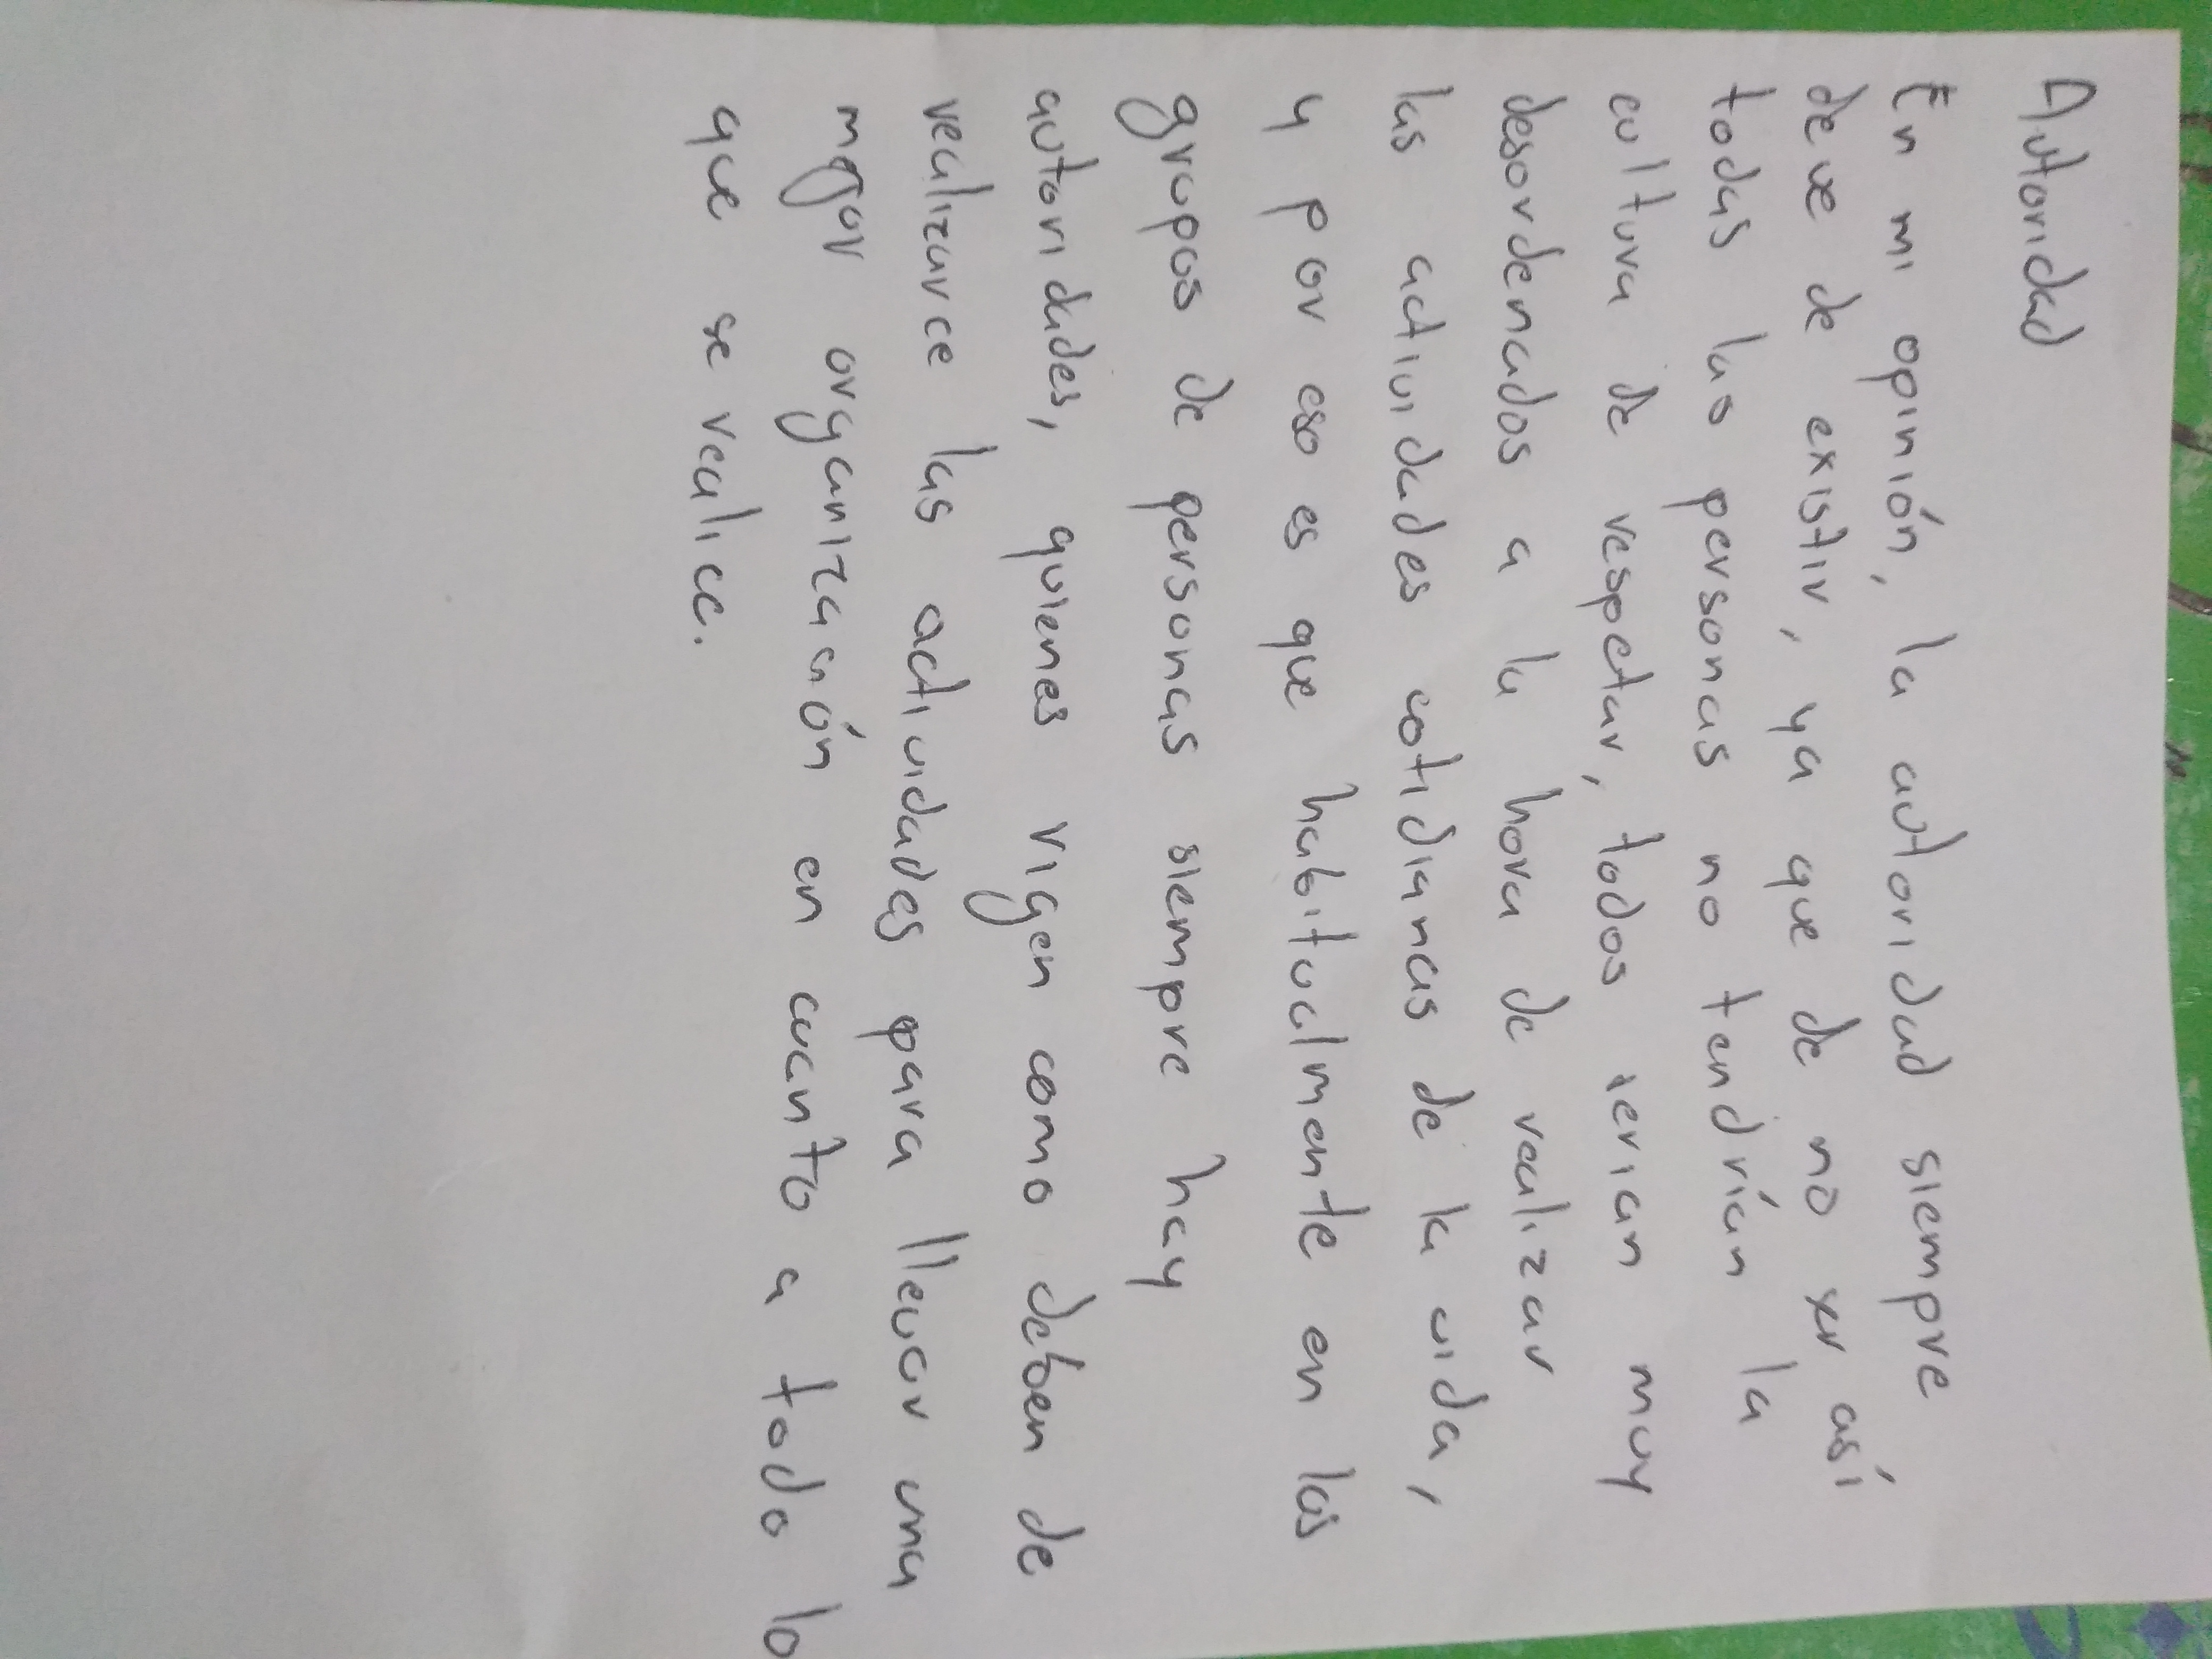 Autoridad
En mi opinión, la autoridad siempre
deve de existir, ya que de no ser así
todas las personas no tendrían la
cultura de respetar, todos serian muy
desordenados a la hora de realizar
las actividades cotidianas de la vida,
y por eso es que habitualmente en los
grupos de personas siempre hay
autoridades, quienes rigen como deben de
realizarce las actividades para llevar una
mejor organización en cuanto a todo lo
que se realice.